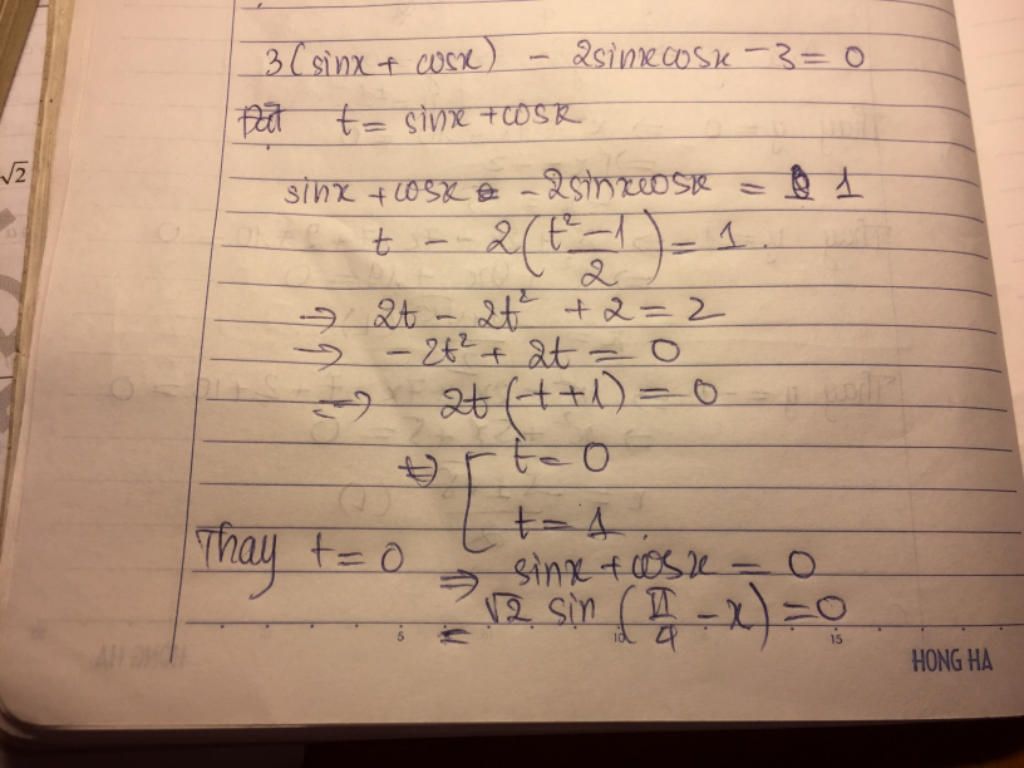 3(sinx + cosx) - 2sinxcosx - 3 = 0
Đặt t = sinx + cosx
√2
sinx + cosx - 2sinxcosx = 1
t - 2(t²-1/2) = 1.
→ 2t - 2t² + 2 = 2
→ -2t² + 2t = 0
→ 2t(-t+1) = 0
⇔ [ t = 0
t = 1.
Thay t = 0 ⇒ sinx + cosx = 0
= √2 sin(π/4 - x) = 0
5 10 15
HONG HA